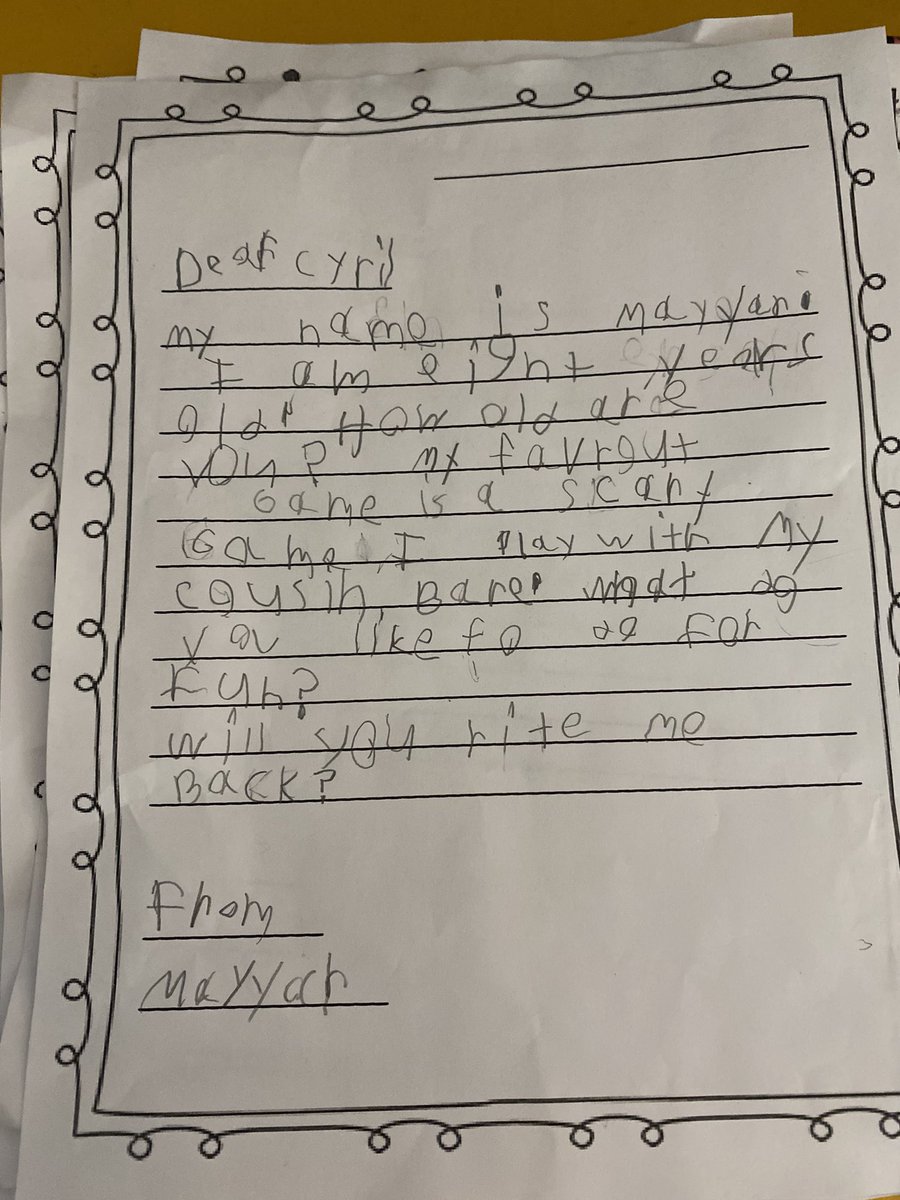 Dear Cyril
my name is mayyan.
I am eight years
old. How old are
you? my favrout
Game is a scary
Game. I Play with My
cousin. What do
you like to do for
Fun?
will you rite me
Back?
From
Mayyan